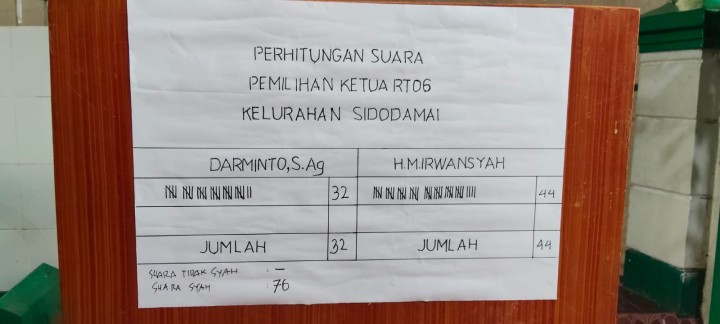 PERHITUNGAN SUARA
PEMILIHAN KETUA RT06
KELURAHAN SIDODAMAI
DARMINTO, S.Ag H.M.IRWANSYAH
32 44
JUMLAH 32 JUMLAH 44
SUARA TIDAK SYAH : –
SUARA SYAH : 76